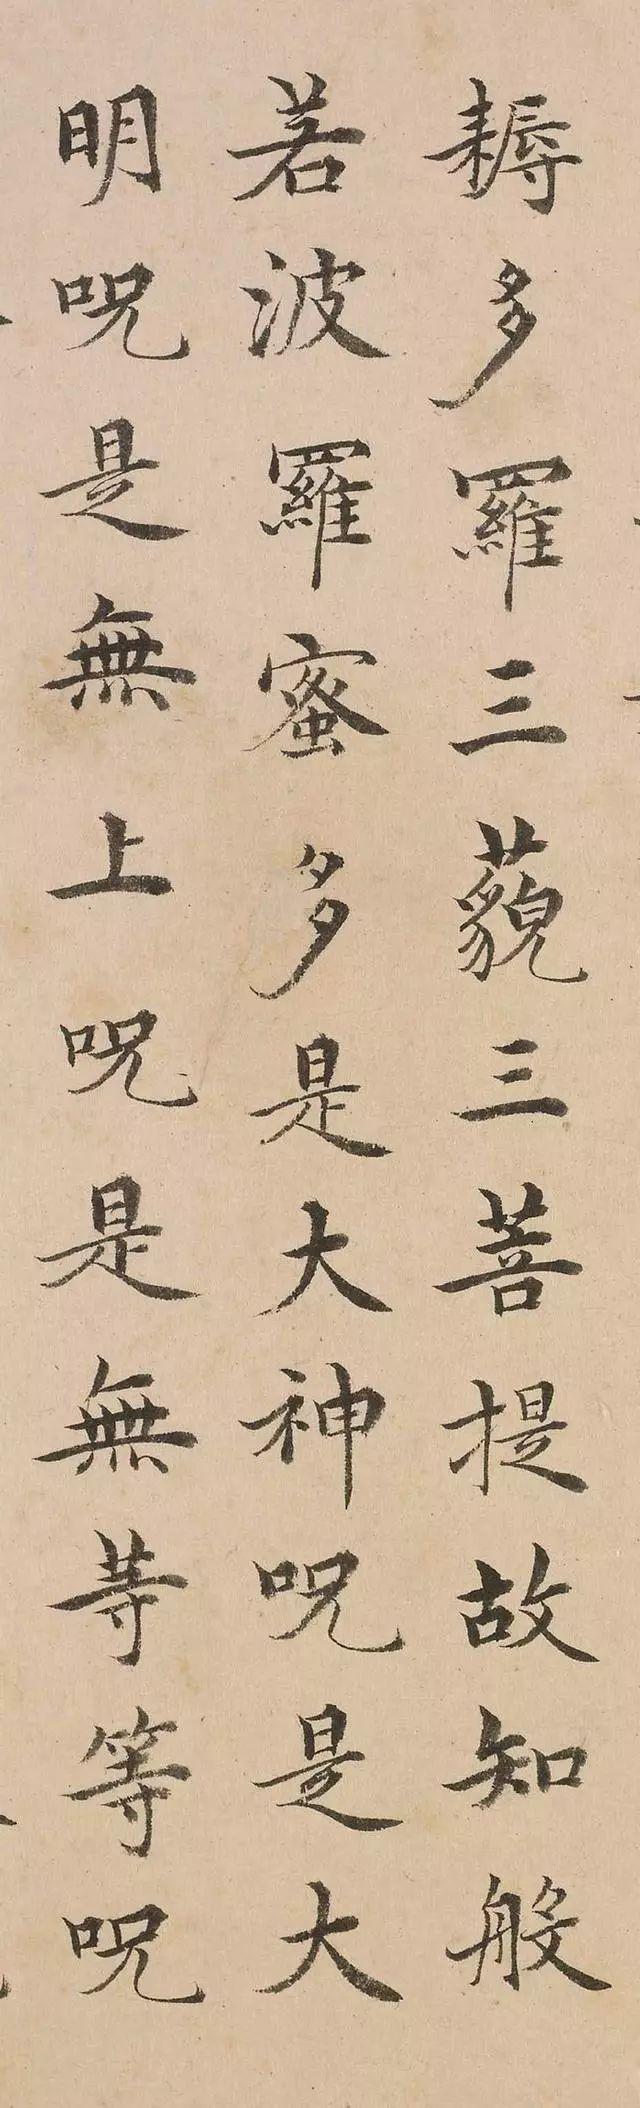 耨多羅三藐三菩提故知般
若波羅蜜多是大神呪是大
明呪是無上呪是無等等呪